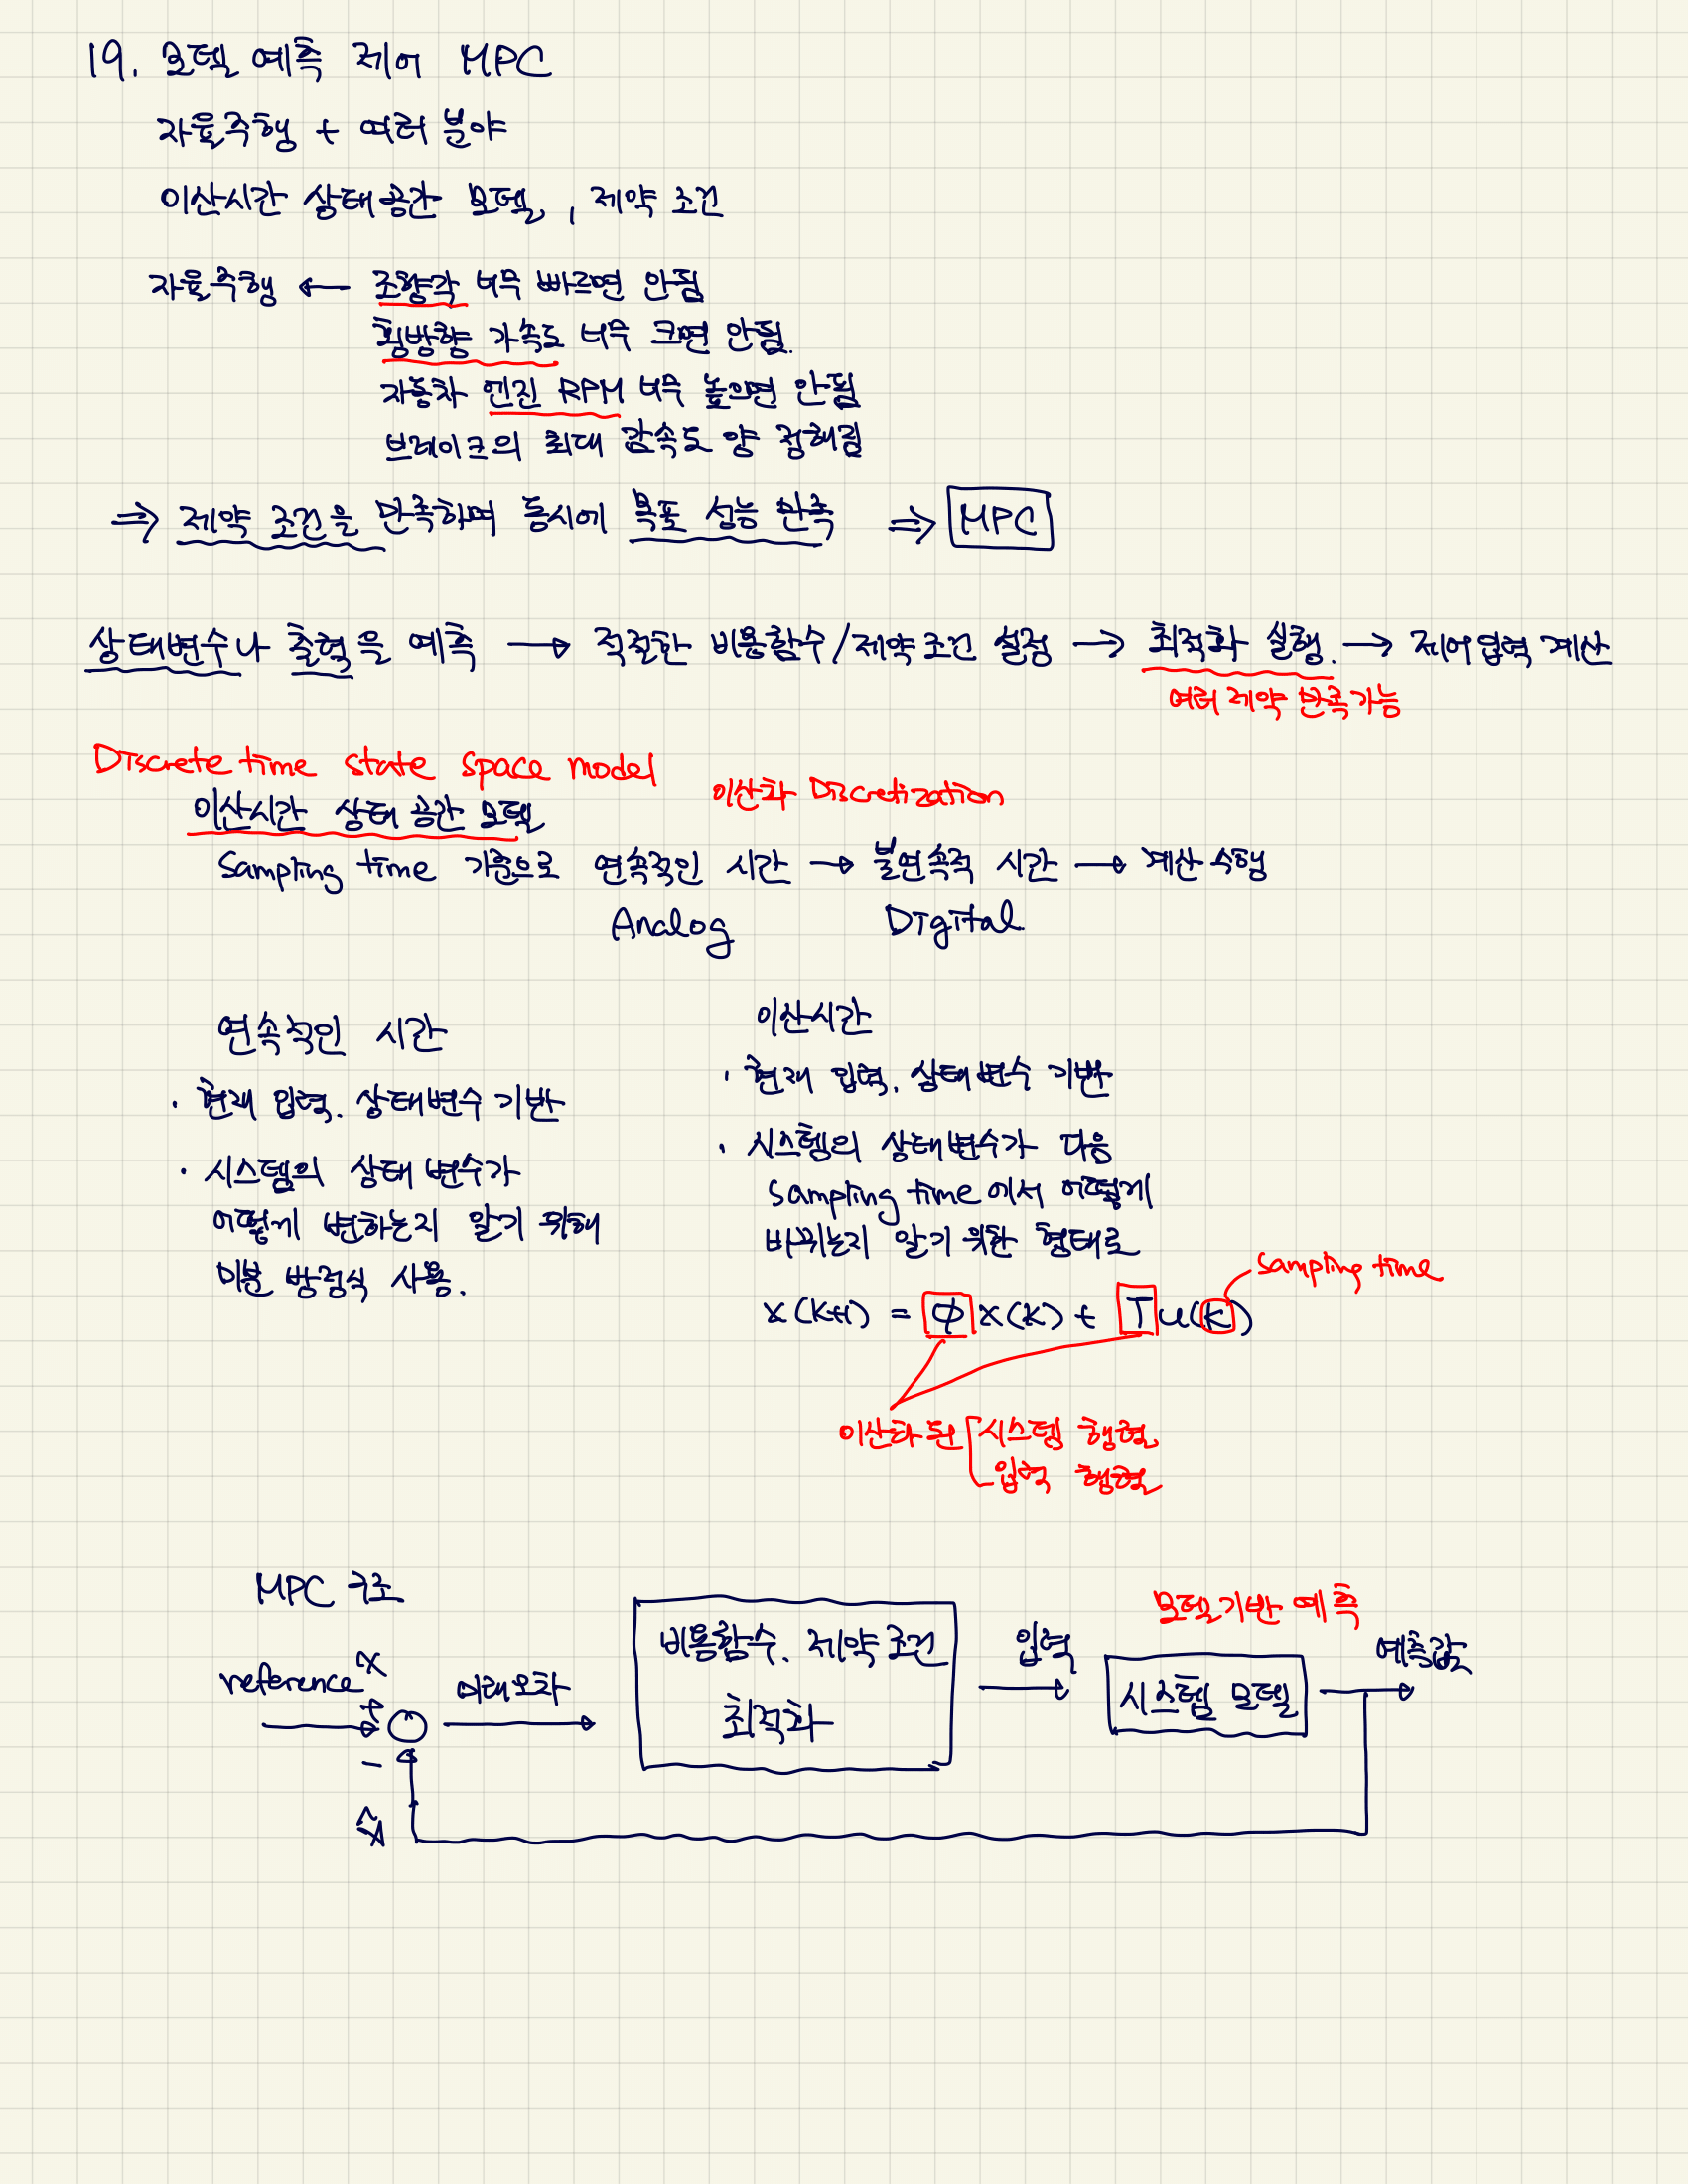 19. 모델 예측 제어 MPC
자율주행 + 여러 분야
이산시간 상태공간 모델, 제약 조건
자율주행 ← 조향각 너무 빠르면 안됨
횡방향 가속도 너무 크면 안됨.
자동차 엔진 RPM 너무 높으면 안됨
브레이크의 최대 감속도 양 정해짐
⇒ 제약 조건을 만족하며 동시에 목표 성능 만족 ⇒ MPC
상태변수나 출력을 예측 → 적절한 비용함수/제약조건 설정 → 최적화 실행. → 제어 입력 계산
여러 제약 만족 가능
Discrete time state space model
이산화 Discretization
이산시간 상태 공간 모델
Sampling time 기준으로 연속적인 시간 → 불연속적 시간 → 계산 수행
Analog Digital
연속적인 시간
· 현재 입력. 상태변수 기반
· 시스템의 상태 변수가
어떻게 변하는지 알기 위해
미분 방정식 사용.
이산시간
· 현재 입력. 상태변수 기반
· 시스템의 상태변수가 다음
sampling time에서 어떻게
바뀌는지 알기 위한 형태로
sampling time
x(k+1) = Φ x(k) + Γ u(k)
이산화 된 시스템 행렬
입력 행렬
MPC 구조
reference
+
-
미래오차
비용함수. 제약 조건
최적화
입력
모델기반 예측
시스템 모델
예측값